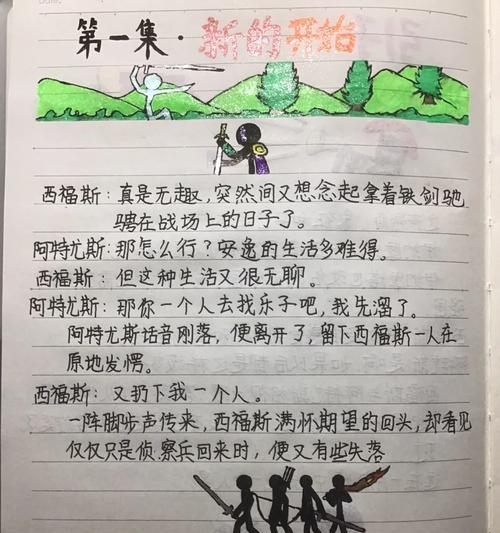 第一集·新的开始
西福斯：真是无趣，突然间又想念起拿着铁剑驰
骋在战场上的日子了。
阿特尤斯：那怎么行？安逸的生活多难得。
西福斯：但这种生活又很无聊。
阿特尤斯：那你一个人去找乐子吧，我先溜了。
阿特尤斯话音刚落，便离开了，留下西福斯一人在
原地发愣。
西福斯：又扔下我一个人。
一阵脚步声传来，西福斯满怀期望的回头，却看见
仅仅只是侦察兵回来时，便又有些失落